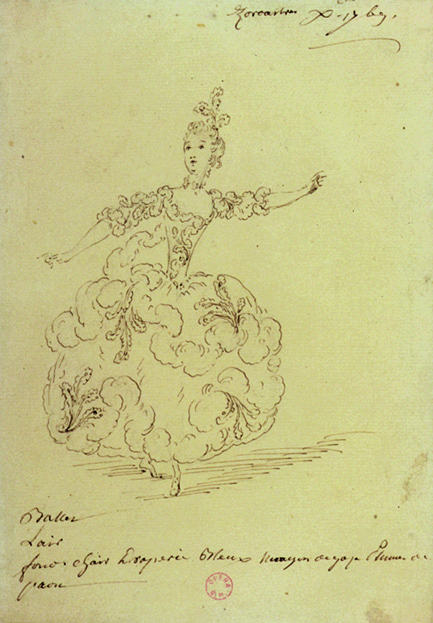 Zoroastre
Ballet
Lair
fond Chair Draperie Bleux nuages de gaze Plumes de
paon
OPERA